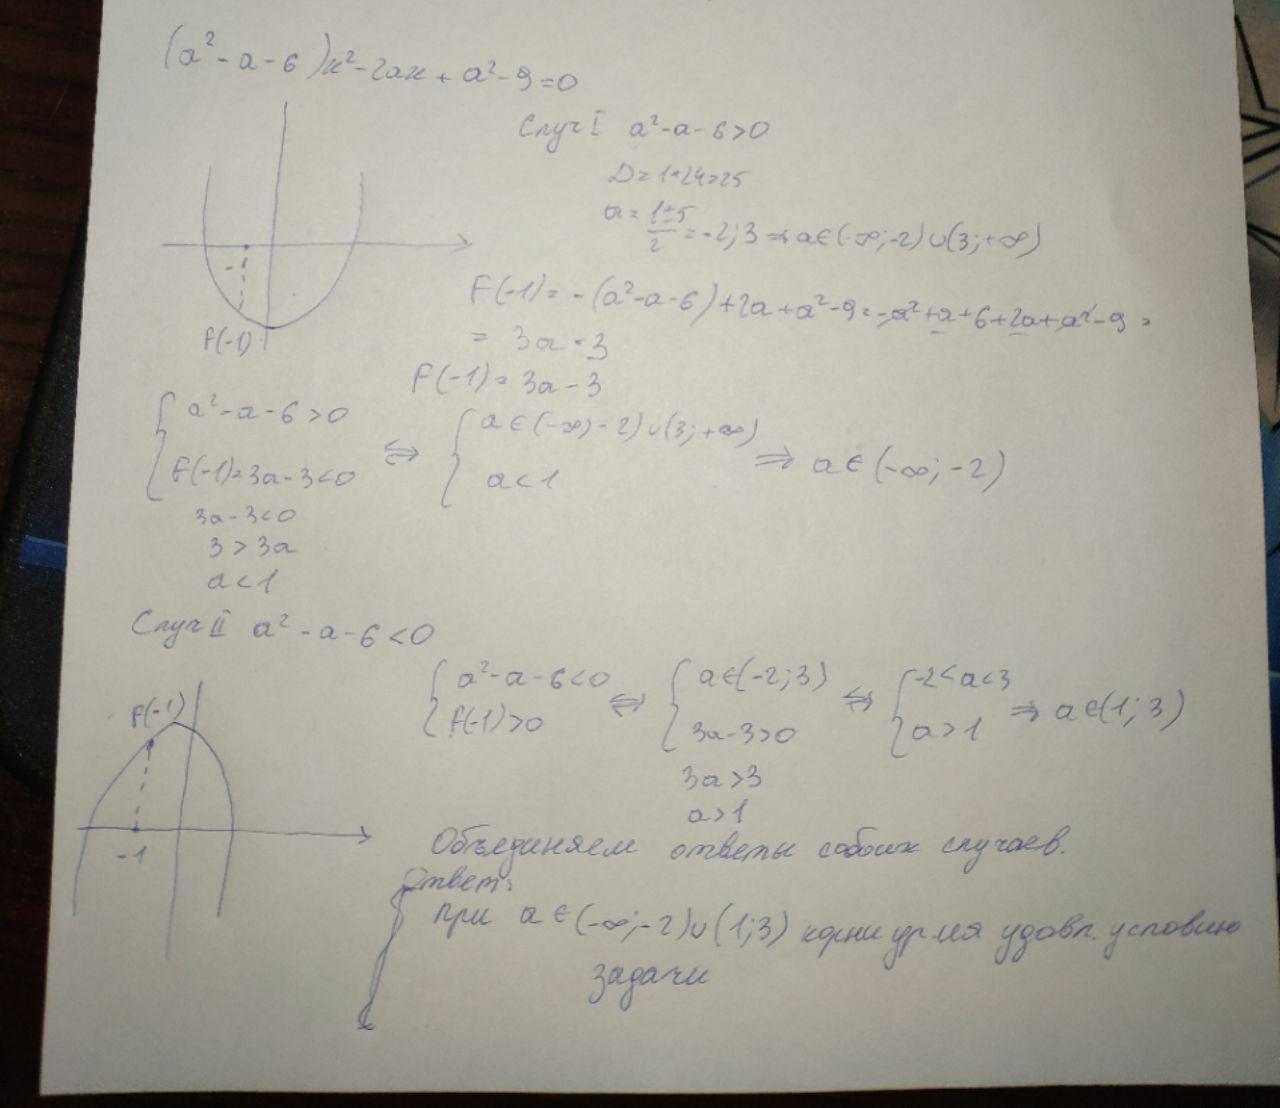 (a²-a-6)x²-2ax+a²-9=0
Случ I a²-a-6>0
D=1+24=25
a=(1±5)/2=-2;3 ⇒ a∈(-∞;-2)∪(3;+∞)
-1
f(-1)
F(-1)=-(a²-a-6)+2a+a²-9=-a²+a+6+2a+a²-9=
= 3a-3
F(-1)=3a-3
{ a²-a-6>0 ⇔ { a∈(-∞;-2)∪(3;+∞) ⇒ a∈(-∞;-2)
F(-1)=3a-3<0 a<1
3a-3<0
3>3a
a<1
Случ II a²-a-6<0
{ a²-a-6<0 ⇔ { a∈(-2;3) ⇔ { -2<a<3 ⇒ a∈(1;3)
f(-1)>0 3a-3>0 a>1
3a>3
a>1
f(-1)
-1
Объединяем ответы обоих случаев.
Ответ:
при a∈(-∞;-2)∪(1;3) корни ур-ия удовл. условию
задачи